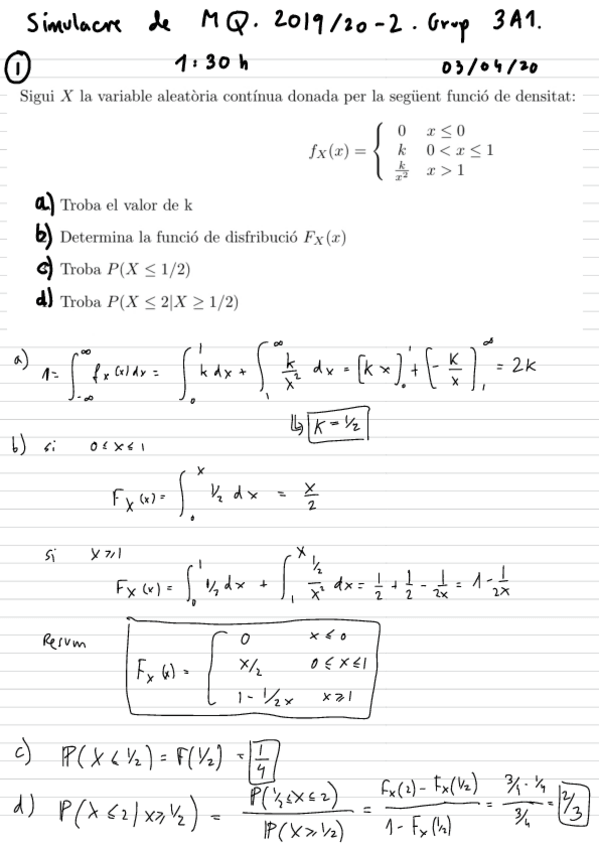 Simulacre de MQ. 2019/20-2. Grup 3A1.
① 1:30 h 03/04/20
Sigui X la variable aleatòria contínua donada per la següent funció de densitat:
f_X(x) = { 0 x ≤ 0
k 0 < x ≤ 1
k/x² x > 1
a) Troba el valor de k
b) Determina la funció de disfribució F_X(x)
c) Troba P(X ≤ 1/2)
d) Troba P(X ≤ 2|X ≥ 1/2)
a) 1 = ∫_{-∞}^{∞} f_x(x)dx = ∫_0^1 k dx + ∫_1^∞ k/x² dx = [kx]_0^1 + [-k/x]_1^∞ = 2k
↳ k = 1/2
b) si 0 ≤ x ≤ 1
F_X(x) = ∫_0^x 1/2 dx = x/2
si x ≥ 1
F_X(x) = ∫_0^1 1/2 dx + ∫_1^x (1/2)/x² dx = 1/2 + 1/2 - 1/2x = 1 - 1/2x
Resum
F_X(x) = { 0 x ≤ 0
x/2 0 ≤ x ≤ 1
1 - 1/2x x ≥ 1
c) P(X ≤ 1/2) = F(1/2) = 1/4
d) P(X ≤ 2 | X ≥ 1/2) = P(1/2 ≤ X ≤ 2) / P(X ≥ 1/2) = (F_X(2) - F_X(1/2)) / (1 - F_X(1/2)) = (3/4 - 1/4) / (3/4) = 2/3